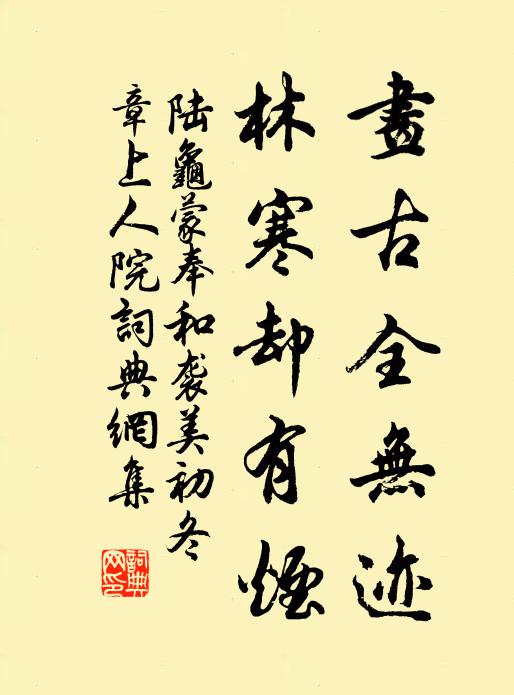 畫古全無迹
林寒却有煙
陆龜蒙奉和袭美初冬
章上人院詞典網集
詞典网印